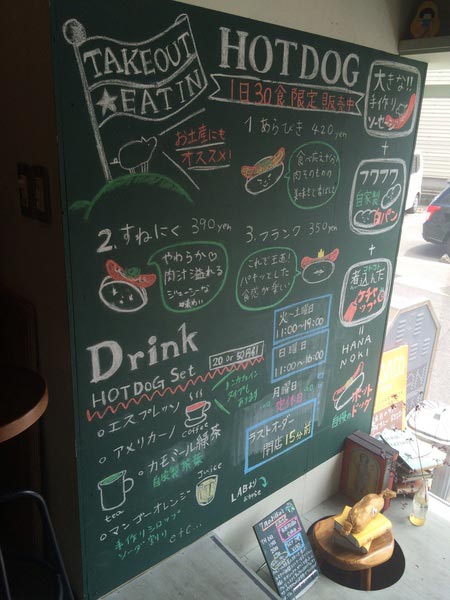 TAKEOUT
★EAT IN
HOTDOG
1日30食限定販売中
お土産にも
オススメ!
1 あらびき 420yen
食べ応えあり
肉そのものの
2. すねにく 390yen
やわらか♡
肉汁溢れる
ジューシーな
味わい
3. フランク 350yen
これぞ王道!
パキッとした
食感が楽しい
大きな!!
手作り
ソーセージ
+
フワフワ
自家製
白パン
+
コトコト
煮込んだ
ケチャップ
=
HANA
NOKI
自慢の
ホット
ドッグ
Drink
20 or 50円引
HOTDOG Set
エスプレッソ
アメリカーノ
coffee
カモミール緑茶
自家製茶葉
tea
マンゴーオレンジ
juice
手作りシロップ
ソーダ割り
etc...
LABより
火〜土曜日
11:00〜19:00
日曜日
11:00〜16:00
月曜日
定休日
ラストオーダー
閉店15分前